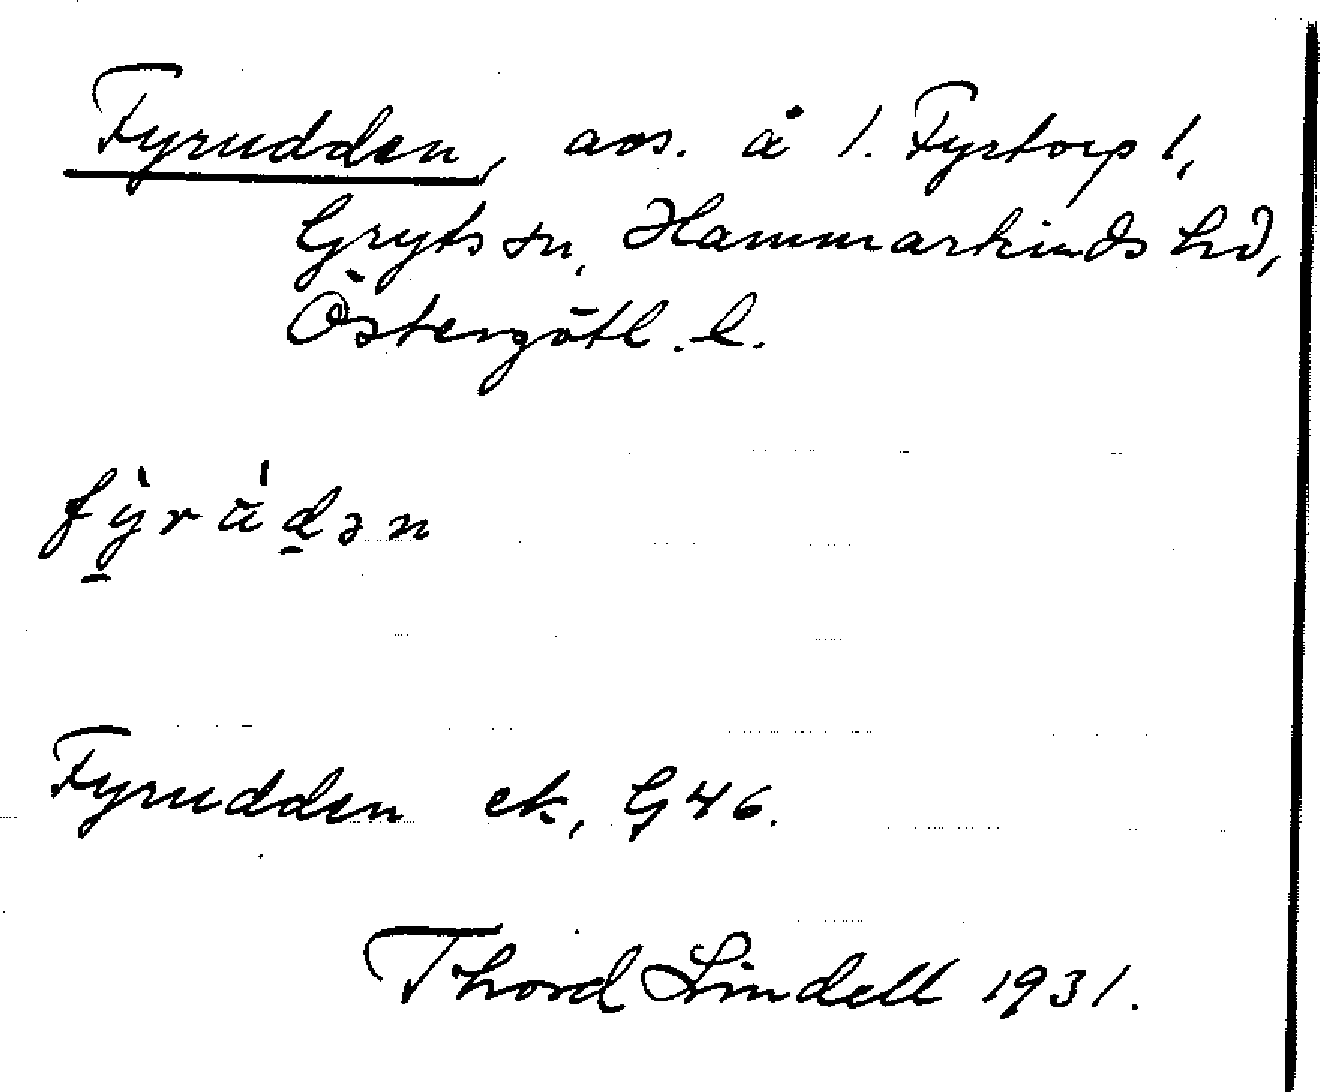 Fyrudden, avs. å 1. Fyrtorp 1,
Gryts sn, Hammarkinds hd,
Östergötl. l.
Fyrudden ek, G 46.
Thord Lindell 1931.